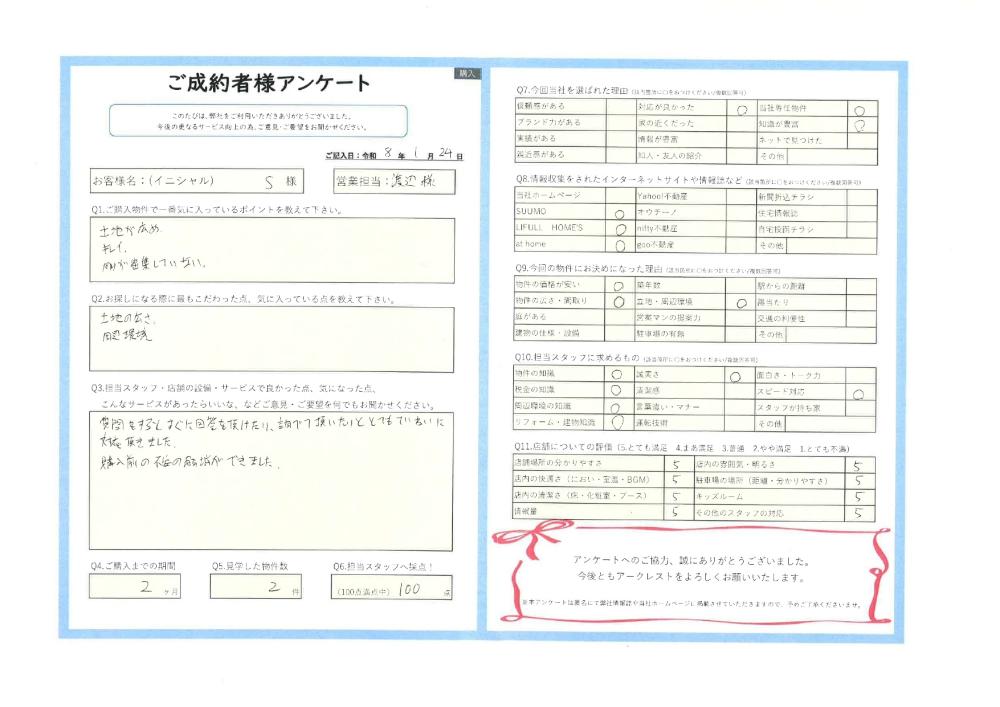 購入
ご成約者様アンケート
このたびは、弊社をご利用いただきありがとうございました。
今後の更なるサービス向上の為、ご意見・ご要望をお聞かせください。
ご記入日：令和 8 年 1 月 24 日
お客様名：(イニシャル) S 様
営業担当：渡辺 様
Q1.ご購入物件で一番気に入っているポイントを教えて下さい。
土地が広め
キレイ、
が密集していない。
Q2.お探しになる際に最もこだわった点、気に入っている点を教えて下さい。
土地の広さ、
周辺環境
Q3.担当スタッフ・店舗の設備・サービスで良かった点、気になった点、
こんなサービスがあったらいいな、などご意見・ご要望を何でもお聞かせください。
質問をするとすぐに回答を頂けたり、調べて頂いたりととてもていねいに
対応頂きました。
購入前の不安の解消ができました。
Q4.ご購入までの期間
2 ヶ月
Q5.見学した物件数
2 件
Q6.担当スタッフへ採点！
(100点満点中) 100 点
Q7.今回当社を選ばれた理由 (該当箇所に○をおつけください/複数回答可)
信頼感がある 対応が良かった ○ 当社専任物件 ○
ブランド力がある 家の近くだった 知識が豊富 ○
実績がある 情報が豊富 ネットで見つけた
親近感がある 知人・友人の紹介 その他
Q8.情報収集をされたインターネットサイトや情報誌など (該当箇所に○をおつけください/複数回答可)
当社ホームページ Yahoo!不動産 新聞折込チラシ
SUUMO ○ オウチーノ 住宅情報誌
LIFULL HOME'S ○ nifty不動産 自宅投函チラシ
at home ○ goo不動産 その他
Q9.今回の物件にお決めになった理由 (該当箇所に○をおつけください/複数回答可)
物件の価格が安い ○ 築年数 駅からの距離
物件の広さ・間取り ○ 立地・周辺環境 ○ 陽当たり
庭がある 営業マンの提案力 交通の利便性
建物の仕様・設備 駐車場の有無 その他
Q10.担当スタッフに求めるもの (該当箇所に○をおつけください/複数回答可)
物件の知識 ○ 誠実さ ○ 面白さ・トーク力
税金の知識 ○ 清潔感 スピード対応 ○
周辺環境の知識 ○ 言葉遣い・マナー スタッフが持ち家
リフォーム・建物知識 ○ 運転技術 その他
Q11.店舗についての評価 (5.とても満足 4.まあ満足 3.普通 2.やや満足 1.とても不満)
店舗場所の分かりやすさ 5 店内の雰囲気・明るさ 5
店内の快適さ(におい・室温・BGM) 5 駐車場の場所(距離・分かりやすさ) 5
店内の清潔さ(床・化粧室・ブース) 5 キッズルーム 5
情報量 5 その他のスタッフの対応 5
アンケートへのご協力、誠にありがとうございました。
今後ともアークレストをよろしくお願いいたします。
※本アンケートは匿名にて弊社情報誌や当社ホームページに掲載させていただきますので、予めご了承くださいませ。